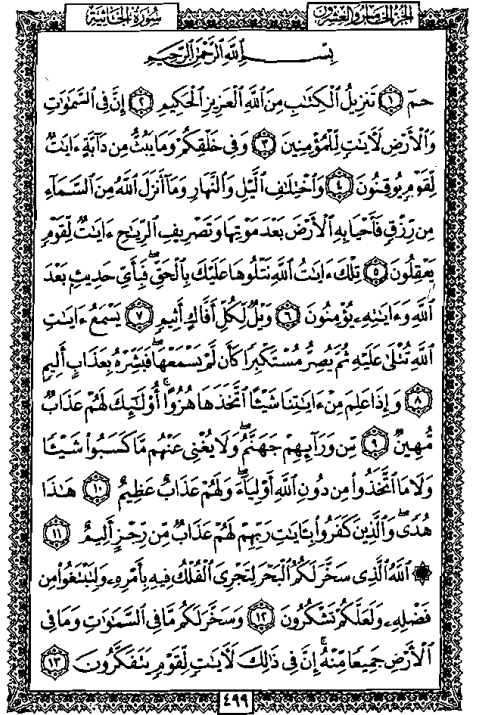 سُورَةُ الجَاثِيَةِ الجُزْءُ الخَامِسُ وَالعِشْرُونَ
بِسْمِ ٱللَّهِ ٱلرَّحْمَٰنِ ٱلرَّحِيمِ
حمٓ ١ تَنزِيلُ ٱلْكِتَٰبِ مِنَ ٱللَّهِ ٱلْعَزِيزِ ٱلْحَكِيمِ ٢ إِنَّ فِى ٱلسَّمَٰوَٰتِ
وَٱلْأَرْضِ لَءَايَٰتٍ لِّلْمُؤْمِنِينَ ٣ وَفِى خَلْقِكُمْ وَمَا يَبُثُّ مِن دَآبَّةٍ ءَايَٰتٌ
لِّقَوْمٍ يُوقِنُونَ ٤ وَٱخْتِلَٰفِ ٱلَّيْلِ وَٱلنَّهَارِ وَمَآ أَنزَلَ ٱللَّهُ مِنَ ٱلسَّمَآءِ
مِن رِّزْقٍ فَأَحْيَا بِهِ ٱلْأَرْضَ بَعْدَ مَوْتِهَا وَتَصْرِيفِ ٱلرِّيَٰحِ ءَايَٰتٌ لِّقَوْمٍ
يَعْقِلُونَ ٥ تِلْكَ ءَايَٰتُ ٱللَّهِ نَتْلُوهَا عَلَيْكَ بِٱلْحَقِّ ۖ فَبِأَىِّ حَدِيثٍۭ بَعْدَ
ٱللَّهِ وَءَايَٰتِهِۦ يُؤْمِنُونَ ٦ وَيْلٌ لِّكُلِّ أَفَّاكٍ أَثِيمٍ ٧ يَسْمَعُ ءَايَٰتِ
ٱللَّهِ تُتْلَىٰ عَلَيْهِ ثُمَّ يُصِرُّ مُسْتَكْبِرًا كَأَن لَّمْ يَسْمَعْهَا ۖ فَبَشِّرْهُ بِعَذَابٍ أَلِيمٍ
٨ وَإِذَا عَلِمَ مِنْ ءَايَٰتِنَا شَيْـًٔا ٱتَّخَذَهَا هُزُوًا ۚ أُو۟لَٰٓئِكَ لَهُمْ عَذَابٌ
مُّهِينٌ ٩ مِّن وَرَآئِهِمْ جَهَنَّمُ ۖ وَلَا يُغْنِى عَنْهُم مَّا كَسَبُوا۟ شَيْـًٔا
وَلَا مَا ٱتَّخَذُوا۟ مِن دُونِ ٱللَّهِ أَوْلِيَآءَ ۖ وَلَهُمْ عَذَابٌ عَظِيمٌ ١٠ هَٰذَا
هُدًى ۖ وَٱلَّذِينَ كَفَرُوا۟ بِـَٔايَٰتِ رَبِّهِمْ لَهُمْ عَذَابٌ مِّن رِّجْزٍ أَلِيمٌ ١١
۞ ٱللَّهُ ٱلَّذِى سَخَّرَ لَكُمُ ٱلْبَحْرَ لِتَجْرِىَ ٱلْفُلْكُ فِيهِ بِأَمْرِهِۦ وَلِتَبْتَغُوا۟ مِن
فَضْلِهِۦ وَلَعَلَّكُمْ تَشْكُرُونَ ١٢ وَسَخَّرَ لَكُم مَّا فِى ٱلسَّمَٰوَٰتِ وَمَا فِى
ٱلْأَرْضِ جَمِيعًا مِّنْهُ ۚ إِنَّ فِى ذَٰلِكَ لَءَايَٰتٍ لِّقَوْمٍ يَتَفَكَّرُونَ ١٣
٤٩٩